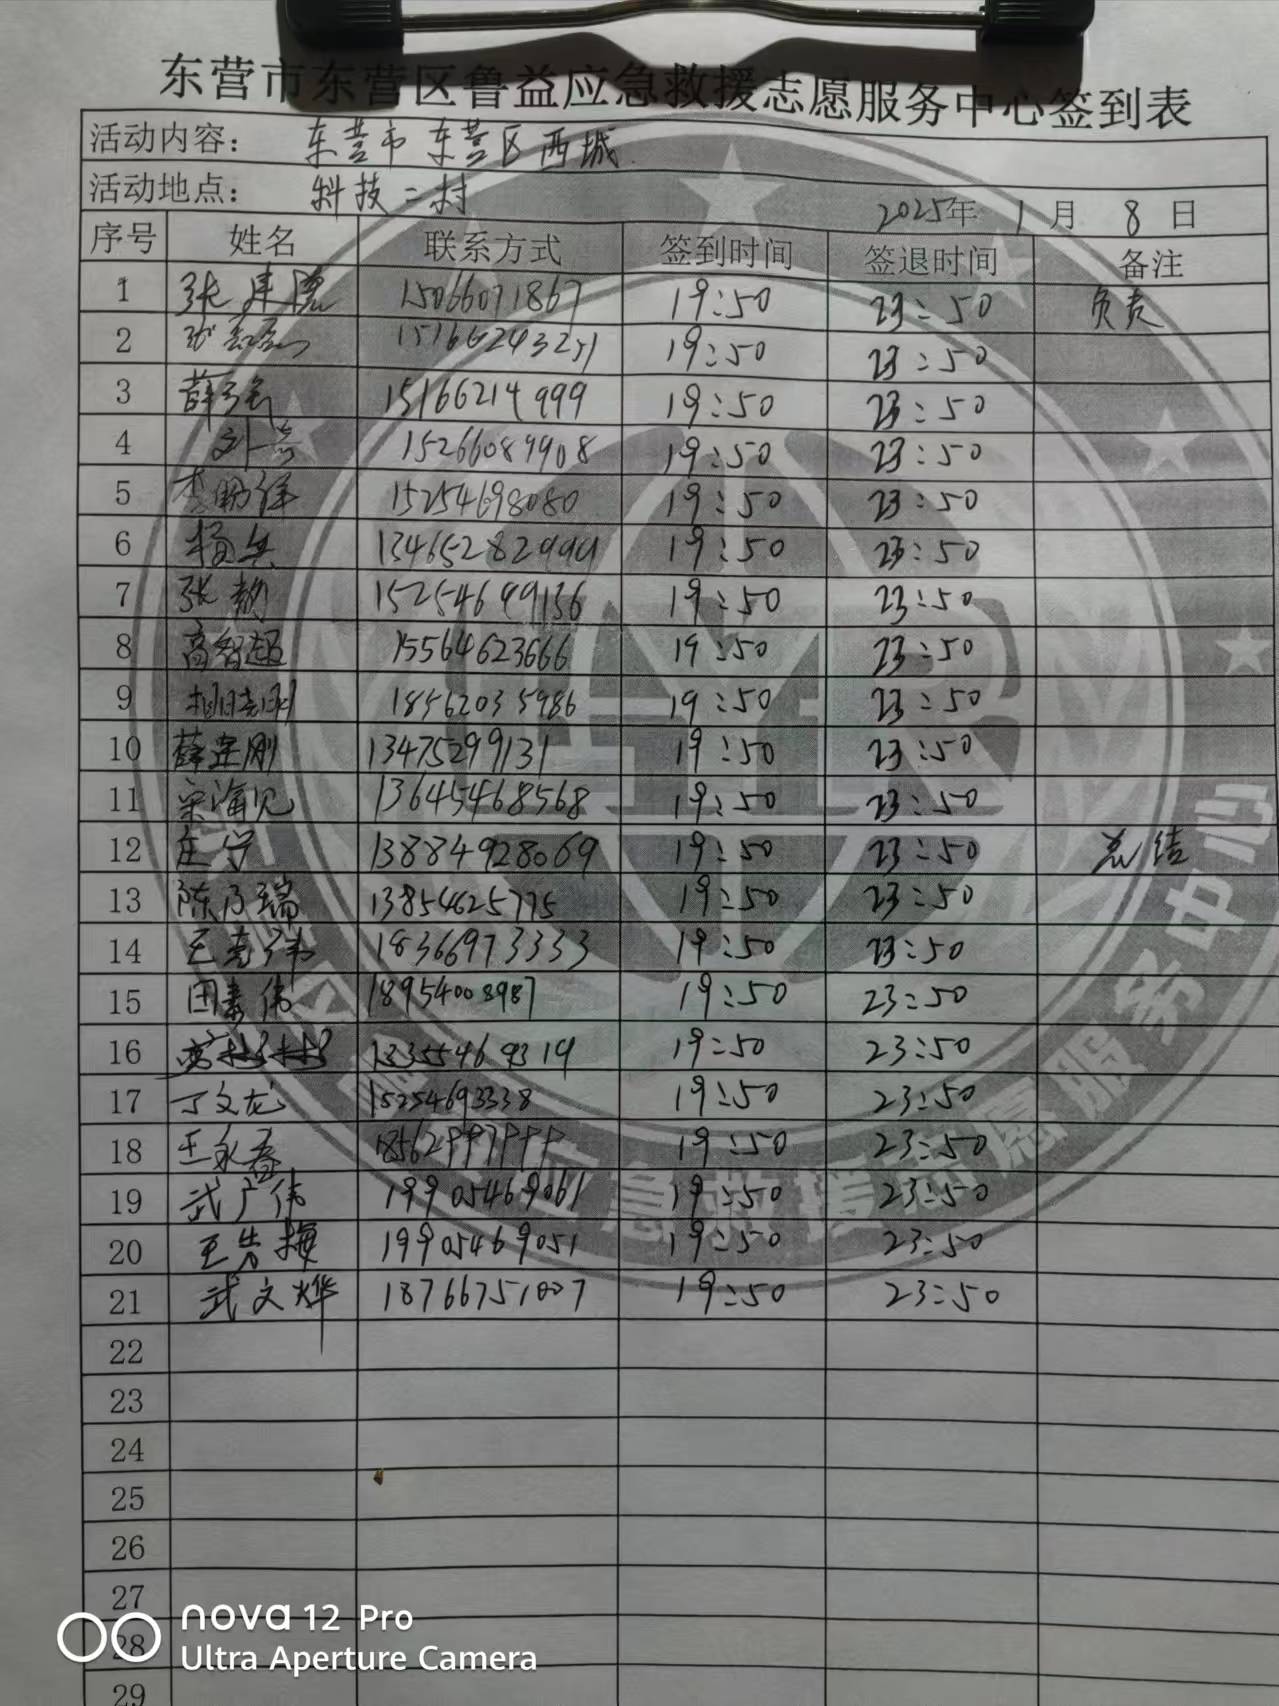 东营市东营区鲁益应急救援志愿服务中心签到表
活动内容： 东营市东营区西城
活动地点： 科技二村
2025年 1 月 8 日
序号 姓名 联系方式 签到时间 签退时间 备注
1 张建 15066071867 19:50 23:50 负责
2 张 19:50 23:50
3 薛强 15166214999 19:50 23:50
4 15266089908 19:50 23:50
5 李鹏 15254698080 19:50 23:50
6 杨兵 13465282999 19:50 23:50
7 张 15254649136 19:50 23:50
8 高智超 15564623666 19:50 23:50
9 18562035986 19:50 23:50
10 薛建刚 13475299131 19:50 23:50
11 宋海 13645468568 19:50 23:50
12 庄宁 13884928069 19:50 23:50 总结
13 陈乃瑞 13854625775 19:50 23:50
14 王 18366973333 19:50 23:50
15 田素伟 18954008987 19:50 23:50
16 13355469319 19:50 23:50
17 丁文龙 15254693338 19:50 23:50
18 王永春 18562997999 19:50 23:50
19 武广伟 19905469061 19:50 23:50
20 王 梅 19905469051 19:50 23:50
21 武文烨 18766751007 19:50 23:50
22
23
24
25
26
27
28
29
应急救援志愿服务中心
nova 12 Pro
Ultra Aperture Camera